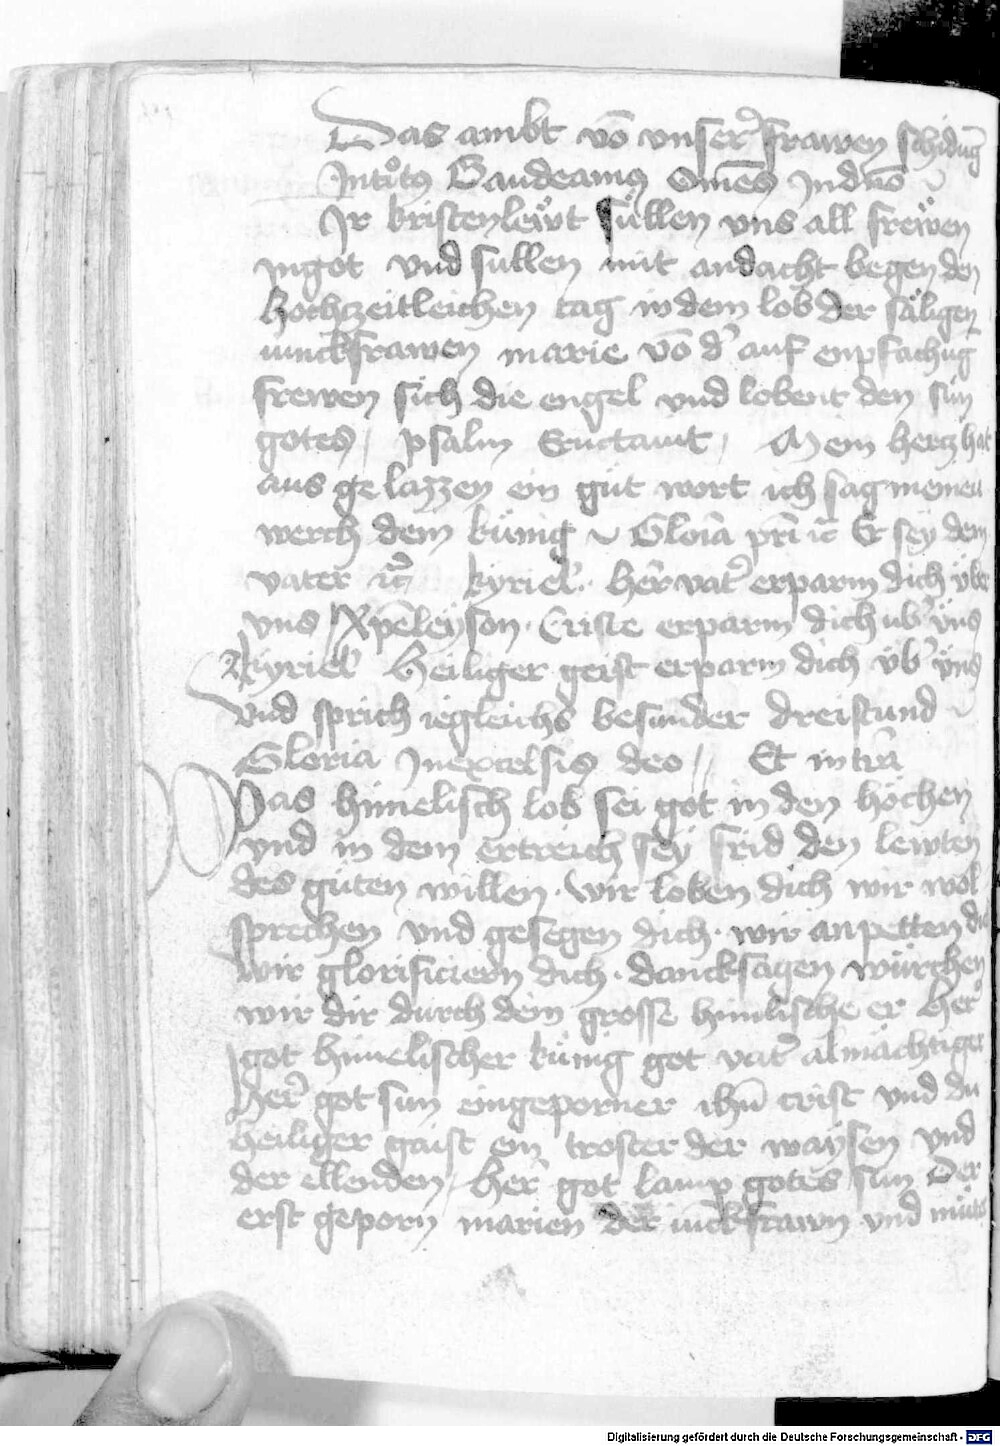 Das ambt vō vnser̉ frawen schidūg
Introit9 Gaudeamus om̄es In dn̄o
Ir kristenlewt süllen vns all frewen
ingot vnd sullen mit andacht begen den
hochzeitleichen tag in dem lob der säligen
iunckfrawen marie vō d' auf enpfachūg
frewen sich die engel vnd lobent den sun
gotes / psalm Eructauit / Mein hercz hat
aus gelazzen ein güt wort ich sag meineu
werch dem künig Gloīa pr̄i ic̄ Er sey dem
vater ic̄ / kyriel'. Her̄ vat' erparm dich über
vns / Xp̄eleyson. Criste erparm dich üb' vns
Kyriel' Heiliger geist erparm dich üb' vns
vnd sprich iegleichs besunder dreistund
Gloria Inexcelsis deo // Et in tr̄a
Das himelisch lob sei got in den höchen
vnd in dem ertreich sey frid den lewten
des güten willen. wir loben dich wir wol
sprechen vnd gesegen dich. wir anpetten di
wir glorificiern dich. dancksagen würchen
wir dir durch dein grosse himlische er Her
got himelischer künig got vat' almächtiger
Her̄ got sun eingeporner ihū crist vnd du
heiliger gaist ein troster der waysen vnd
der ellenden / Her̄ got lamp gotes sun Der
erst geporn marien der iūckfrawn vnd müter
Digitalisierung gefördert durch die Deutsche Forschungsgemeinschaft - DFG